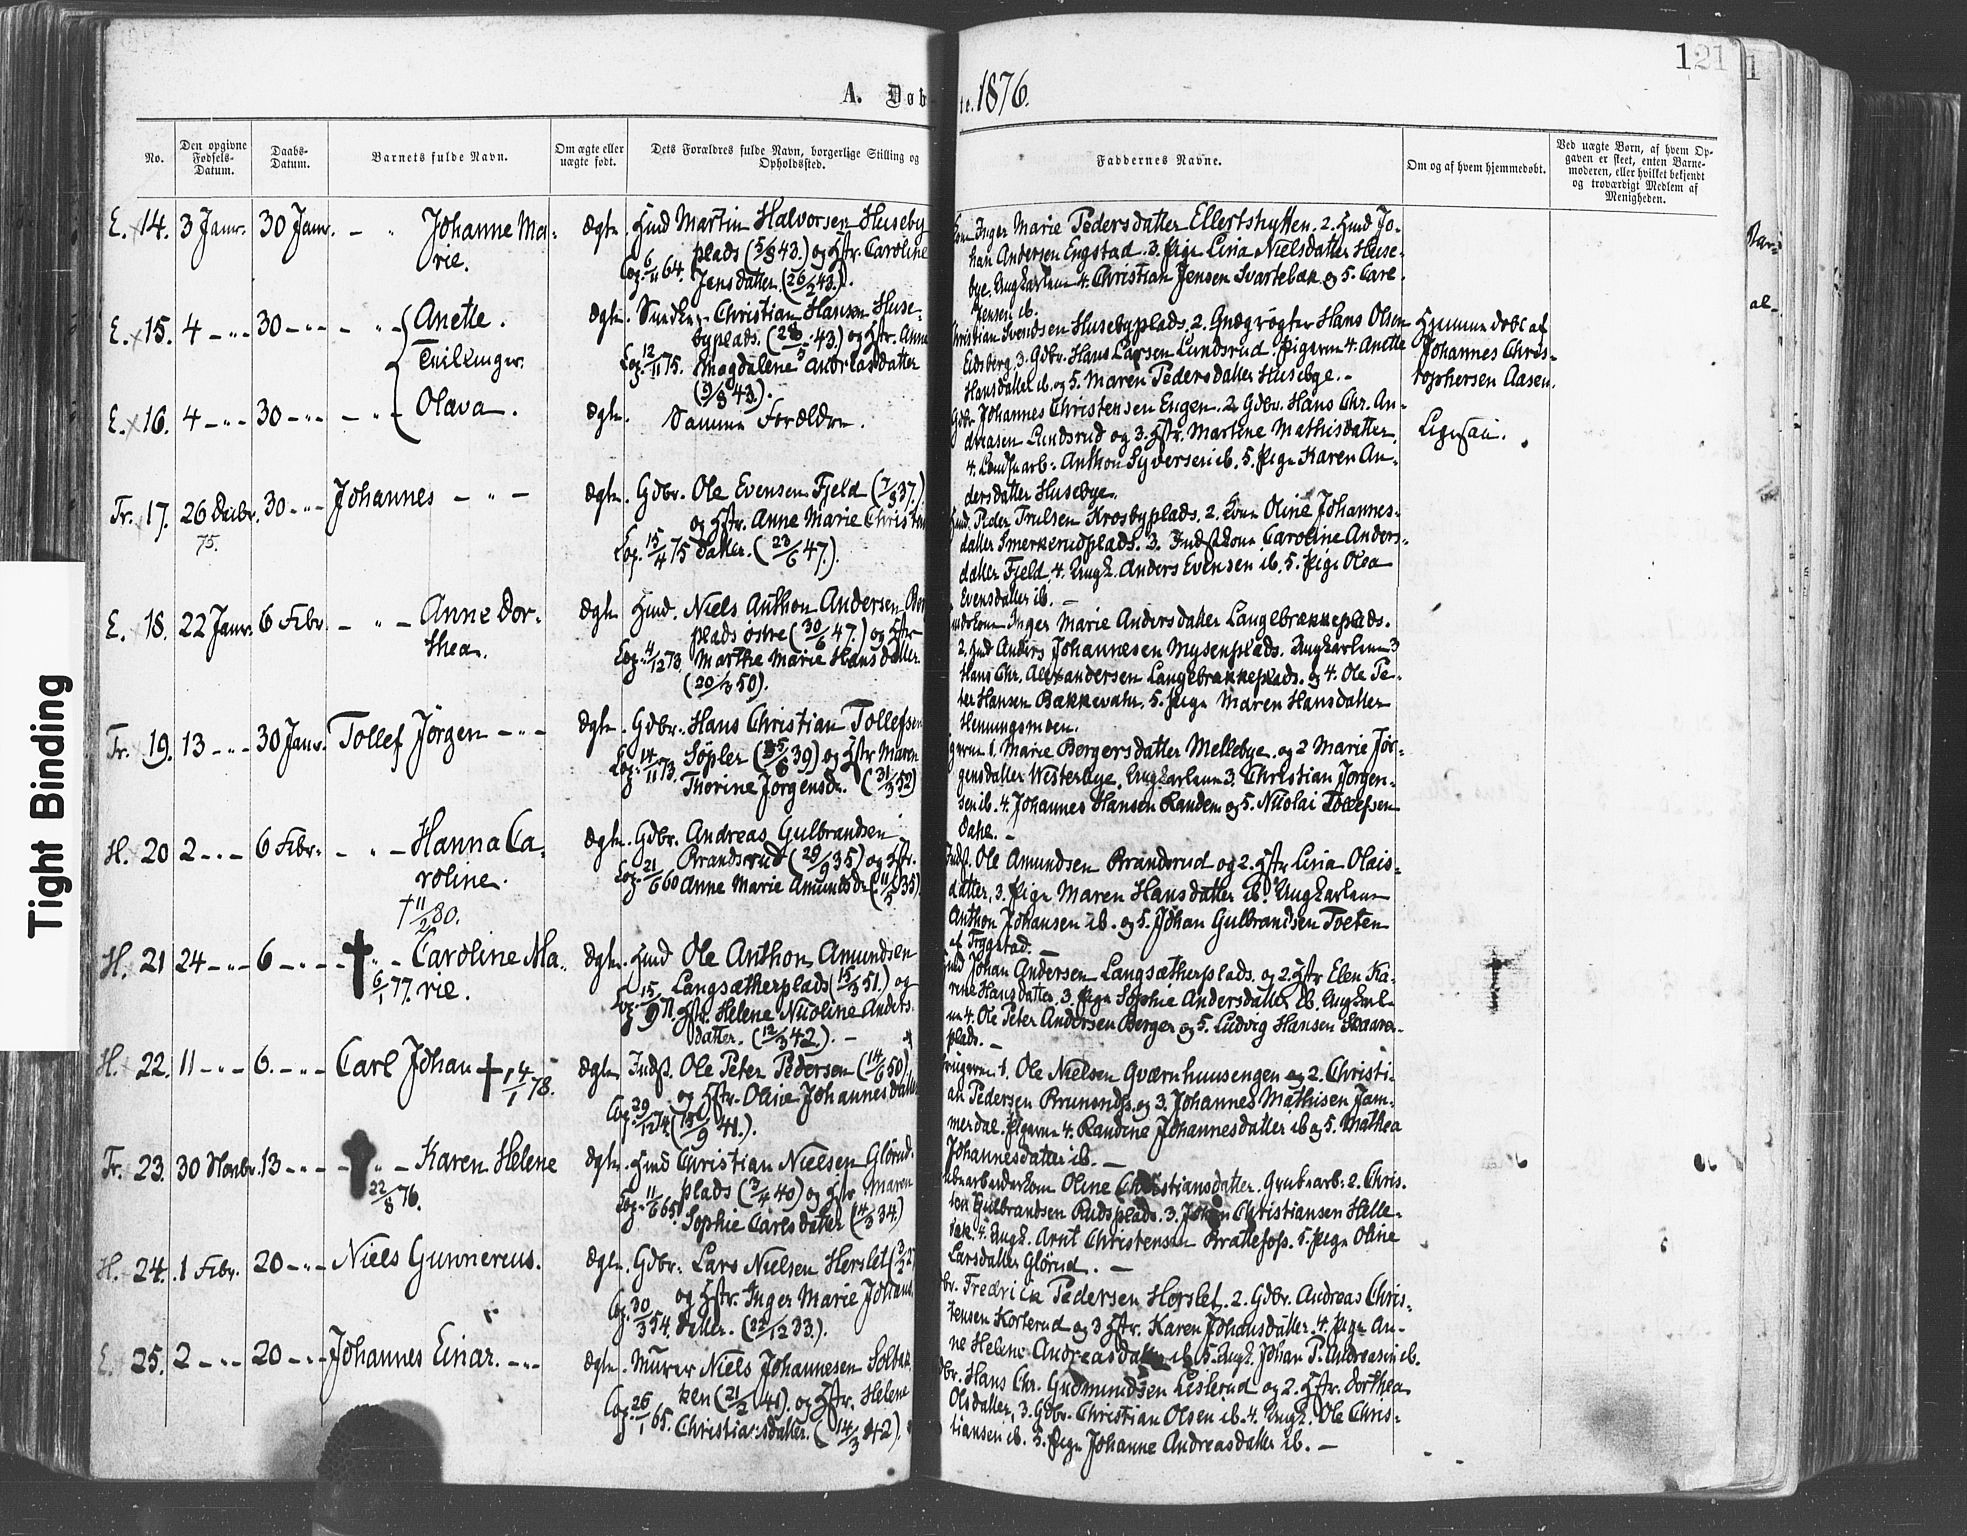 121
1
A. Døb
te. 1876.
No.
Den opgivne Fødsels-Datum.
Daabs-Datum.
Barnets fulde Navn.
Om ægte eller uægte født.
Dets Forældres fulde Navn, borgerlige Stilling og Opholdssted.
Faddernes Navne.
Om og af hvem hjemmedøbt.
Ved uægte Børn, af hvem Op-
gaven er skeet, enten Barne-
moderen, eller hvilket bekjendt
og troværdigt Medlem af
Menigheden.
E. 14. 3 Janr. 30 Janr. - " Johanne Ma-
rie.
Ægte. Husmd Martin Halvorsen Huseby
plads (5/8 43.) og Hstr. Caroline
Cop. 6/11 64. Jensdatter. (26/2 43.).
Inger Marie Pedersdatter Ellertshytten. 2. Husmd Jo-
han Andersen Engstad. 3. Pige Lina Nielsdatter Huse-
bye. Ungkarlene 4. Christian Jensen Svartebæk og 5. Carl
Jensen ib.
E. 15. 4 - " - 30 - " - - " - Anette.
Tvillinger.
Ægte. Christian Hansen Huse-
byplads. (28/5 43.) og Hstr. Anne
Cop. 12/11 75. Magdalene Andreasdatter
(9/8 43.).
Christian Svendsen Husebyplads. 2. Hans Olsen
Eidsberg. 3. Gdbr. Hans Larsen Lundsrud. Pigerne 4. Anette
Hansdatter ib. og 5. Maren Pedersdatter Husebye. -
Hjemme døbt af
Johannes Chris-
tophersen Aasen.
E. 16. 4 - " - 30 - " - - " - Olava.
Ægte. Samme Forældre.
Gdbr. Johannes Christensen Engen. 2. Gdbr. Hans Chr. An-
dreasen Lundsrud og 3. Hstr. Martine Mathisdatter.
4. Anthon Syversen ib. 5. Pige Karen An-
dersdatter Husebye.
Ligesaa.
Tr. 17. 26 Decbr. 30 - " - Johannes - " -
75.
Ægte. Gdbr. Ole Evensen Fjeld (7/8 37.)
og Hstr. Anne Marie Christen
Cop. 15/4 75 datter. (23/6 47.).
Husmd. Peder Trulsen Krosbyplads. 2. Kone Oline Johannes-
datter Smerkerudplads. 3. Indstkone Caroline Anders-
datter Fjeld. 4. Ungk. Anders Evensen ib. 5. Pige Olea
Evensdatter ib. -
E. 18. 22 Janr. 6 Febr. - " - Anne Dor-
thea.
Ægte Husmd. Niels Anthon Andersen
plads østre (30/6 47.) og Hstr
Cop. 4/12 73. Marthe Marie Hansdatter.
(20/3 50).
Inger Marie Andersdatter Langebrækkeplads.
2. Husmd Anders Johannesen Mysenplads. Ungkarlene 3
Hans Chr. Alexandersen Langebrækkeplads. og 4. Ole Pe-
ter Hansen Bækkevahr. 5. Pige Maren Hansdatter
Henningsmoen.
Tr. 19. 13 - " - 30 Janr. Tollef Jørgen - " -
Ægte. Gdbr. Hans Christian Tollefsen
Søpler og Hstr Maren
Cop. 14/11 73. Thorine Jørgensdr. (31/3 52)
Pigerne 1. Marie Bergersdatter Mellebye. og 2 Marie Jør-
gensdatter Westerbye. Ungkarlene 3. Christian Jørgen-
sen ib. 4. Johannes Hansen Randem og 5. Nicolai Tollefsen
Dahl. -
H. 20 2 - " - 6 Febr. - " - Hanna Ca-
roline.
† 11/2 80.
Ægte. Gdbr. Andreas Gulbrandsen
Brandsrud (29/9 35) og Hstr.
Cop. 21/6 60 Anne Marie Amundsdr (11/5 35).
Indst. Ole Amundsen Brandsrud og 2. Hstr Lina Olais-
datter. 3. Pige Maren Hansdatter ib. Ungkarlene
Anthon Johansen ib. og 5. Johan Gulbrandsen Tveten
af Trygstad. -
H. 21 24 - " - 6 - " - † " - Caroline Ma-
6/1 77. rie.
Ægte. Husmd Ole Anthon Amundsen
Langsætherplads (15/3 51.) og
Cop. 15/9 71. Hstr. Helene Nicoline Anders-
datter. (12/3 42.). -
Husmd Johan Andersen Langsætherplads. og 2. Hstr Elen Ka-
rine Hansdatter. 3. Pige Sophie Andersdatter ib. Ungkarle-
ne 4. Ole Peter Andersen Berger og 5. Ludvig Hansen Skaare-
plads. -
H. 22. 11 - " - 6. - " - Carl Johan † 14/1 78.
Ægte Indst. Ole Peter Pedersen (14/6 50)
og Hstr. Oline Johannesdatter
Cop. 29/12 74. (15/9 41.).
1. Ole Nielsen Qværnhuusengen og 2. Christi-
an Pedersen og 3. Johannes Mathisen Jam-
merdal. Pigerne 4. Randine Johannesdatter ib og 5. Mathea
Johannesdatter ib. -
Tr. 23. 30 Novbr. 13 - " - † " - Karen Helene
22/8 76.
Ægte. Husmd Christian Nielsen Glørud-
plads (3/4 40) og Hstr Maren
Cop. 11/6 65. Sophie Carlsdatter (4/3 34.)
Oline Christiansdatter. Grubearb: 2. Chris-
Gulbrandsen Rudsplads. 3. Johan Christiansen Helle-
bæk. 4. Ungk. Arnt Christensen Brattefos. 5. Pige Oline
Larsdatter Glørud. -
H. 24. 1 Febr. 20 - " - Niels Gunnerius.
Ægte. Gdbr. Lars Nielsen Herslet
og Hstr. Inger Marie Johans
Cop. 30/3 54. datter. (22/12 33.).
Fredrick Pedersen Herslet. 2. Gdbr. Andreas Chris-
tensen Korterud og 3 Hstr. Karen Johansdatter. 4. Pige An-
ne Helene Andreasdatter ib 5. Ungk. Johan P. Andreasen ib.
E. 25. 2 - " - 20 - " - Johannes Einar. - " -
Ægte. Murer Niels Johannesen Solbak
ken (21/2 41). og Hstr. Helene
Cop. 26/1 65. Christiansdatter. (14/3 42).
Hans Chr. Gudmundsen Leslerud og 2. Hstr. Dorthea
Olsdatter. 3. Gdbr. Christian Olsen ib. 4. Ungk. Ole Chris-
tiansen ib. 5. Pige Johanne Andreasdatter ib. -
Tight Binding